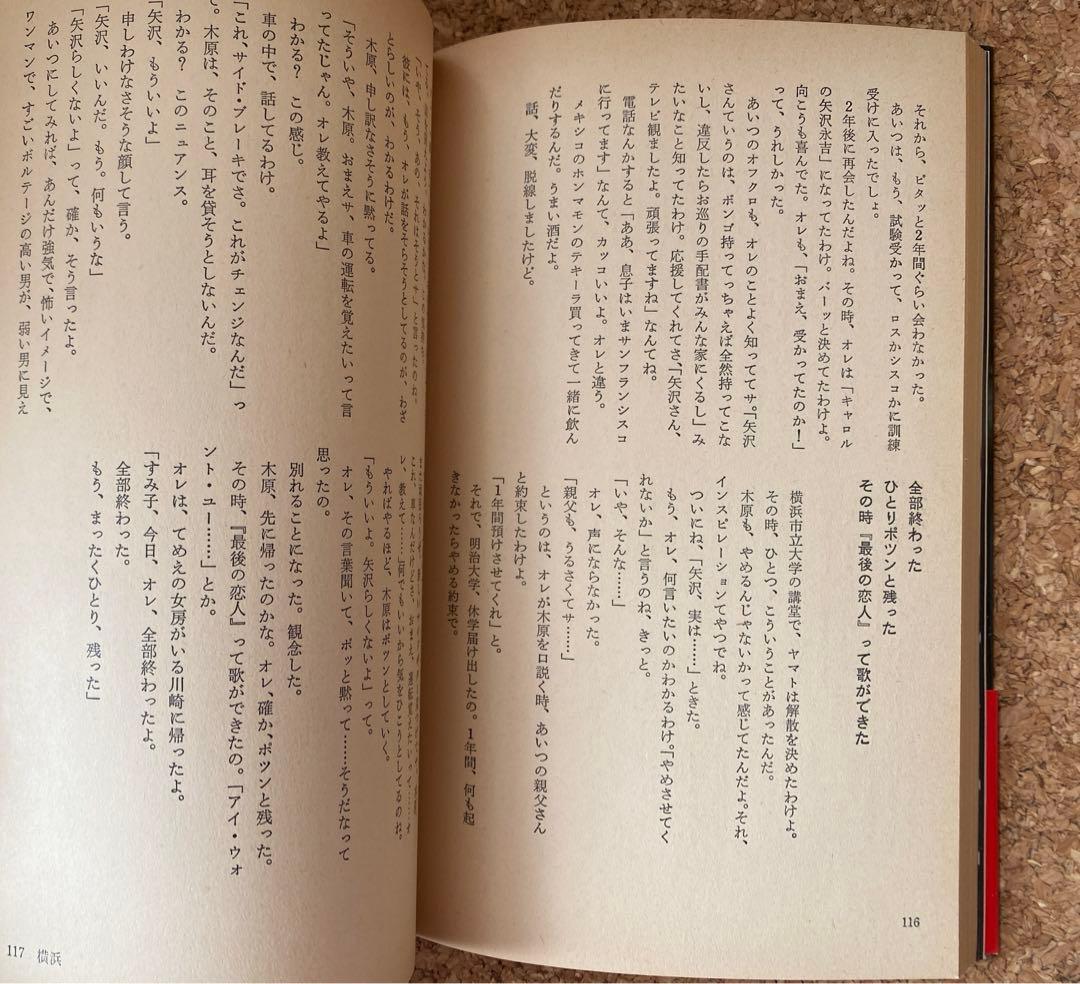 それから、ピタッと2年間ぐらい会わなかった。
あいつは、もう、試験受かって、ロスかシスコかに訓練
受けに入ったでしょ。
2年後に再会したんだよね。その時、オレは「キャロル
の矢沢永吉」になってたわけ。バーッと決めてたわけよ。
向こうも喜んでた。オレも、「おまえ、受かってたのか！」
って、うれしかった。
あいつのオフクロも、オレのことよく知っててサ。「矢沢
さんていうのは、ポンゴ持ってっちゃえば全然持ってこな
いし、違反したらお巡りの手配書がみんな家にくるし」み
たいなこと知ってたわけ。応援してくれてさ、「矢沢さん、
テレビ観ましたよ。頑張ってますね」なんてね。
電話なんかすると「ああ、息子はいまサンフランシスコ
に行ってます」なんて、カッコいいよ。オレと違う。
メキシコのホンマモンのテキーラ買ってきて一緒に飲ん
だりするんだ。うまい酒だよ。
話、大変、脱線しましたけど。
全部終わった
ひとりポツンと残った
その時『最後の恋人』って歌ができた
横浜市立大学の講堂で、ヤマトは解散を決めたわけよ。
その時、ひとつ、こういうことがあったんだ。
木原も、やめるんじゃないかって感じてたんだよ。それ、
インスピレーションてやつでね。
ついにね、「矢沢、実は……」ときた。
もう、オレ、何言いたいのかわかるわけ。「やめさせてく
れないか」と言うのね、きっと。
「いや、そんな……」
オレ、声にならなかった。
「親父も、うるさくてサ……」
というのは、オレが木原を口説く時、あいつの親父さん
と約束したわけよ。
「1年間預けさせてくれ」と。
それで、明治大学、休学届け出したの。1年間、何も起
きなかったらやめる約束で。
「いや、そう、あの、それはそうとサ」と言ったのね。
彼には、もう、オレが話をそらそうとしてるのが、わざ
とらしいのが、わかるわけだ。
木原、申し訳なさそうに黙ってる。
「そういや、木原。おまえサ、車の運転を覚えたいって言
ってたじゃん。オレ教えてやるよ」
わかる？　この感じ。
車の中で、話してるわけ。
「これ、サイド・ブレーキでさ。これがチェンジなんだ」っ
て。木原は、そのこと、耳を貸そうとしないんだ。
わかる？　このニュアンス。
「矢沢、もういいよ」
申しわけなさそうな顔して言う。
「矢沢、いいんだ。もう。何もいうな」
「矢沢らしくないよ」って、確か、そう言ったよ。
あいつにしてみれば、あんだけ強気で、怖いイメージで、
ワンマンで、すごいボルテージの高い男が、弱い男に見え
これ、車なんだけどさ、おまえ、運転覚えたいって……オ
レ、教えて……」何でもいいから気をひこうとしてるのね。
やればやるほど、木原はポツンとしていく。
「もういいよ。矢沢らしくないよ」って。
オレ、その言葉聞いて、ボッと黙って……そうだなって
思ったの。
別れることになった。観念した。
木原、先に帰ったのかな。オレ、確か、ポツンと残った。
その時、『最後の恋人』って歌ができたの。「アイ・ウォ
ント・ユー……」とか。
オレは、てめえの女房がいる川崎に帰ったよ。
「すみ子、今日、オレ、全部終わったよ。
全部終わった。
もう、まったくひとり、残った」
116
117 横浜